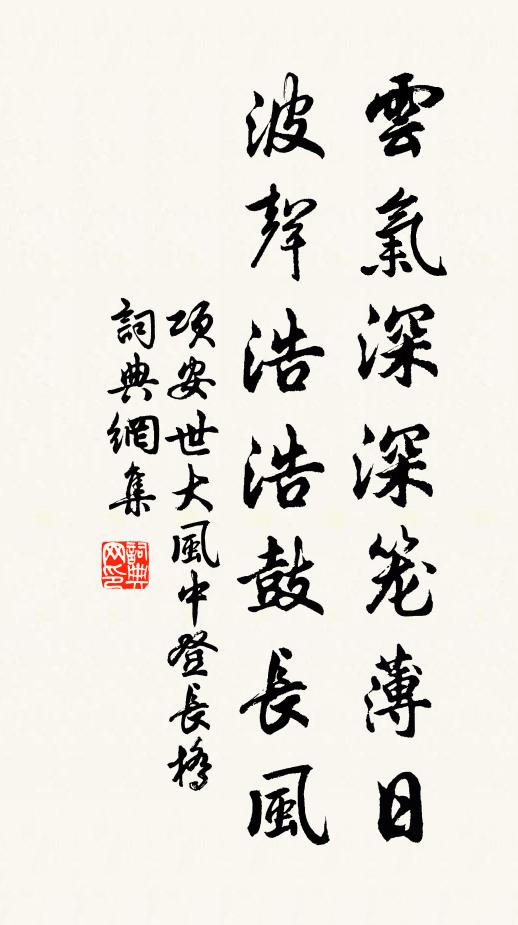 雲氣深深笼薄日
波聲浩浩鼓長風
项安世大風中登長橋
詞典網集
詞典網印